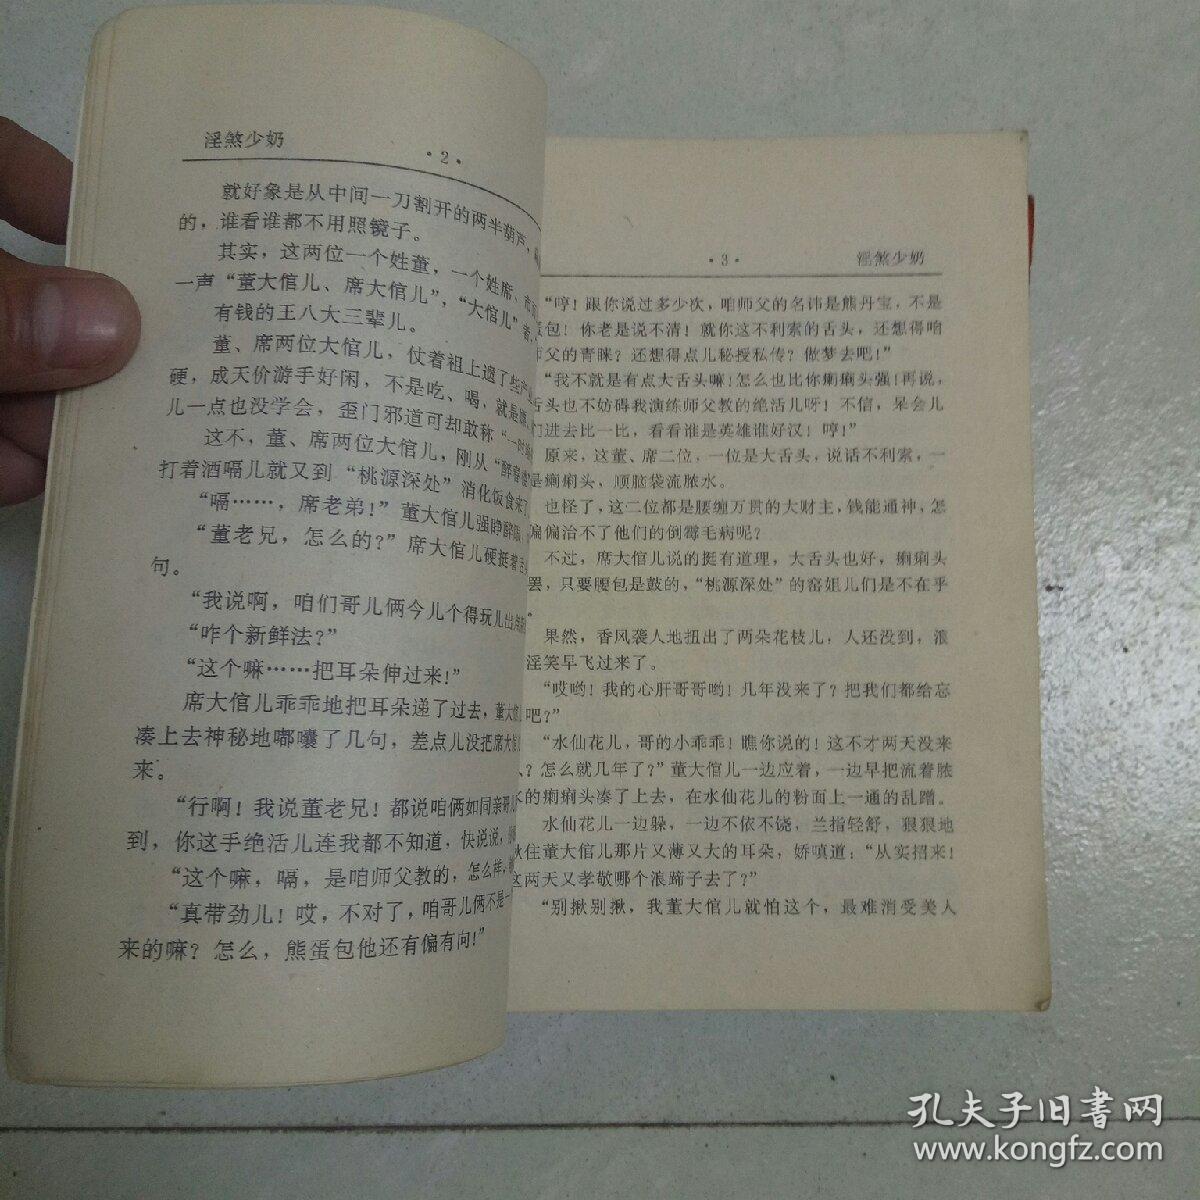 淫煞少奶
·2·
就好象是从中间一刀割开的两半葫芦，
的，谁看谁都不用照镜子。
其实，这两位一个姓董，一个姓席，
一声“董大倌儿、席大倌儿”，“大倌儿”者，
有钱的王八大三辈儿。
董、席两位大倌儿，仗着祖上遗了些产
硬，成天价游手好闲，不是吃、喝，就是
儿一点也没学会，歪门邪道可却敢称“一时
这不，董、席两位大倌儿，刚从“醉
打着酒嗝儿就又到“桃源深处”消化饭食来了
“嗝……，席老弟！”董大倌儿强睁醉眼
“董老兄，怎么的？”席大倌儿硬挺着舌
句。
“我说啊，咱们哥儿俩今儿个得玩儿出
“咋个新鲜法？”
“这个嘛……把耳朵伸过来！”
席大倌儿乖乖地把耳朵递了过去，董大倌儿
凑上去神秘地嘟囔了几句，差点儿没把席大倌
来。
“行啊！我说董老兄！都说咱俩如同亲哥儿
到，你这手绝活儿连我都不知道，快说说，
“这个嘛，嗝，是咱师父教的，怎么样，
“真带劲儿！哎，不对了，咱哥儿俩不是一
来的嘛？怎么，熊蛋包他还有偏有向！”
·3·
淫煞少奶
“哼！跟你说过多少次，咱师父的名讳是熊丹宝，不是
蛋包！你老是说不清！就你这不利索的舌头，还想得咱
师父的青睐？还想得点儿秘授私传？做梦去吧！”
“我不就是有点大舌头嘛！怎么也比你瘌痢头强！再说，
舌头也不妨碍我演练师父教的绝活儿呀！不信，呆会儿
们进去比一比，看看谁是英雄谁好汉！哼！”
原来，这董、席二位，一位是大舌头，说话不利索，一
是瘌痢头，顺脑袋流脓水。
也怪了，这二位都是腰缠万贯的大财主，钱能通神，怎
偏偏治不了他们的倒霉毛病呢？
不过，席大倌儿说的挺有道理，大舌头也好，瘌痢头
罢，只要腰包是鼓的，“桃源深处”的窑姐儿们是不在乎
果然，香风袭人地扭出了两朵花枝儿，人还没到，浪
淫笑早飞过来了。
“哎哟！我的心肝哥哥哟！几年没来了？把我们都给忘
吧？”
“水仙花儿，哥的小乖乖！瞧你说的！这不才两天没来
？怎么就几年了？”董大倌儿一边应着，一边早把流着脓
的瘌痢头凑了上去，在水仙花儿的粉面上一通的乱蹭。
水仙花儿一边躲，一边不依不饶，兰指轻舒，狠狠地
揪住董大倌儿那片又薄又大的耳朵，娇嗔道：“从实招来！
这两天又孝敬哪个浪蹄子去了？”
“别揪别揪，我董大倌儿就怕这个，最难消受美人
孔夫子旧书网
www.kongfz.com